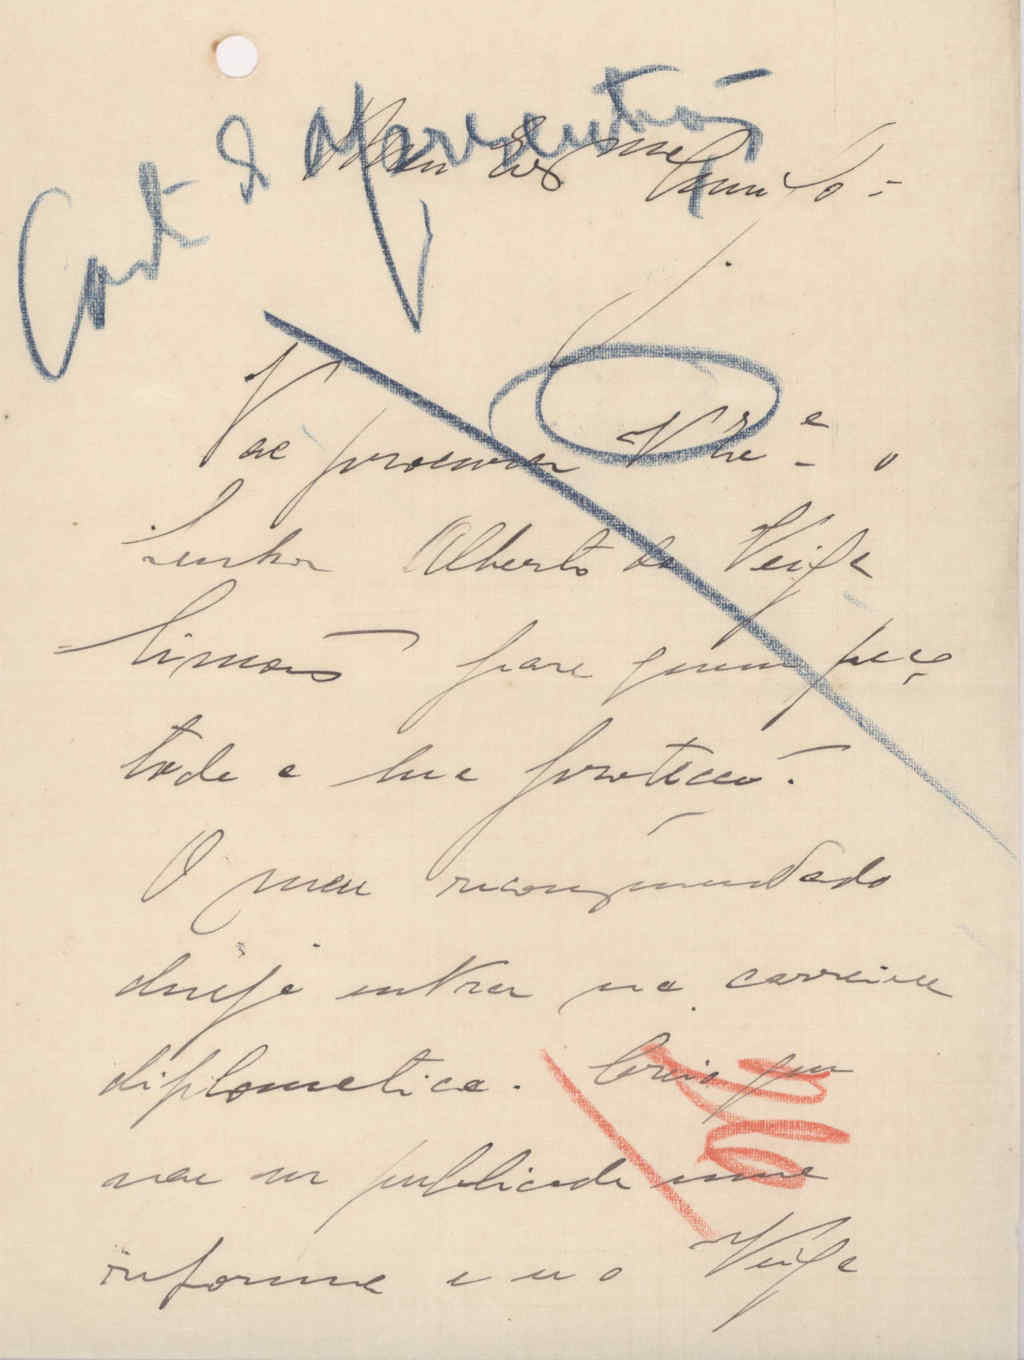 Carta de apresentação
Meu Exmo Camilo =
Vae procurar V. Exª o
Senhor Alberto da Veiga
Simões para quem peço
toda a sua protecção.
O meu recommendado
deseja entrar na carreira
diplomatica. Creio que
vae ser publicada uma
reforma e eu o Veiga